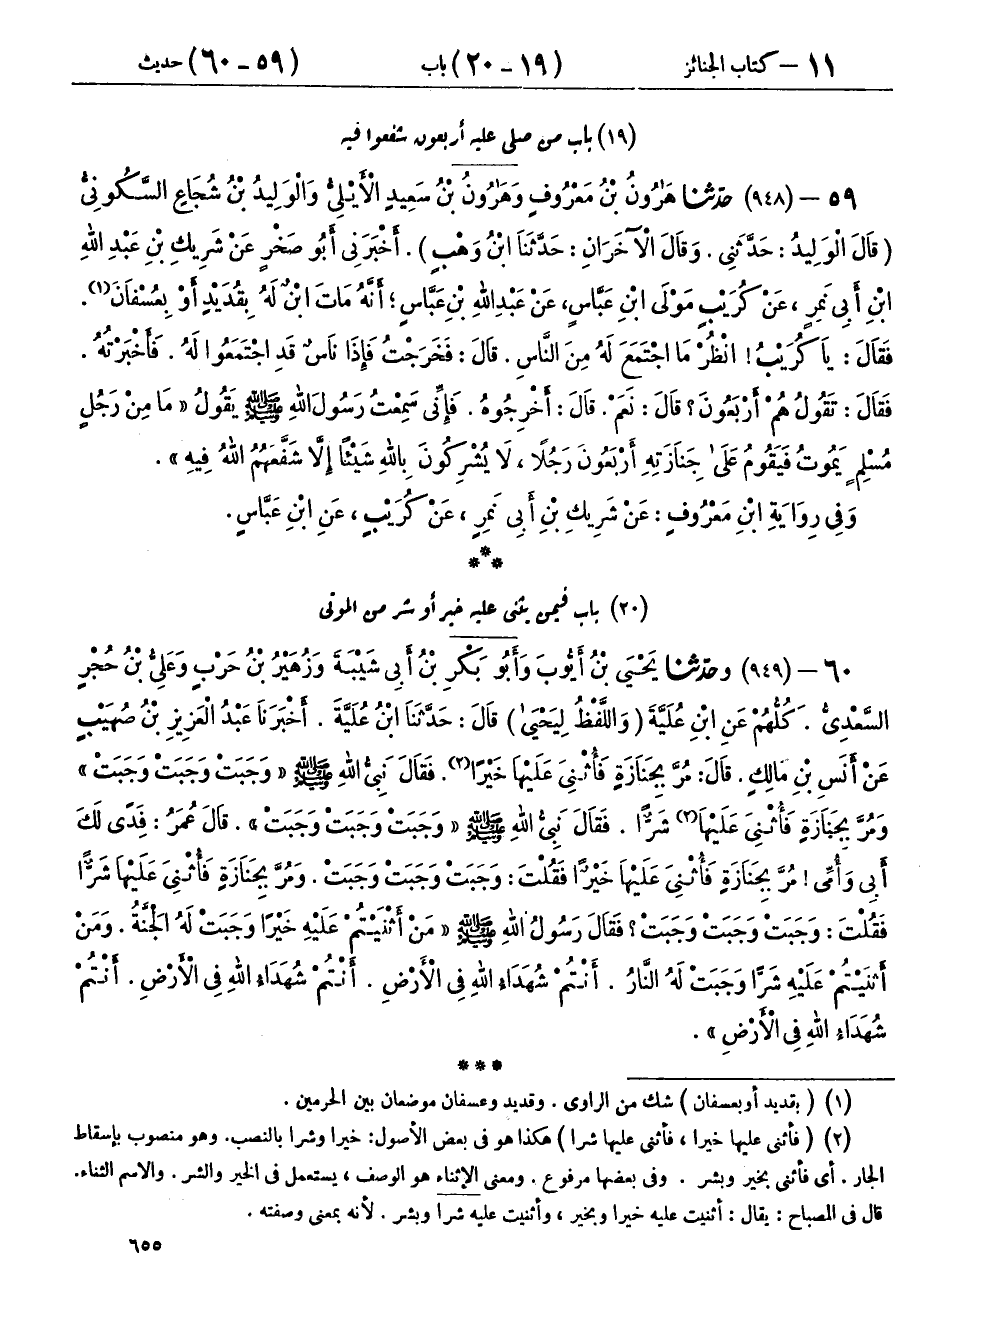 ١١ – كتاب الجنائز (١٩ – ٢٠) باب (٥٩ – ٦٠) حديث
(١٩) باب من صلى عليه أربعون شفعوا فيه
٥٩ – (٩٤٨) حدثنا هَارُونُ بْنُ مَعْرُوفٍ وَهَارُونُ بْنُ سَعِيدٍ الْأَيْلِيُّ وَالْوَلِيدُ بْنُ شُجَاعٍ السَّكُونِيُّ
( قَالَ الْوَلِيدُ : حَدَّثَنِي . وَقَالَ الْآخَرَانِ : حَدَّثَنَا ابْنُ وَهْبٍ ) . أَخْبَرَنِي أَبُو صَخْرٍ عَنْ شَرِيكِ بْنِ عَبْدِ اللهِ
ابْنِ أَبِي نَمِرٍ ، عَنْ كُرَيْبٍ مَوْلَى ابْنِ عَبَّاسٍ، عَنْ عَبْدِ اللهِ بْنِ عَبَّاسٍ ؛ أَنَّهُ مَاتَ ابْنٌ لَهُ بِقُدَيْدٍ أَوْ بِعُسْفَانَ(١).
فَقَالَ : يَا كُرَيْبُ ! انْظُرْ مَا اجْتَمَعَ لَهُ مِنَ النَّاسِ . قَالَ : فَخَرَجْتُ فَإِذَا نَاسٌ قَدِ اجْتَمَعُوا لَهُ . فَأَخْبَرْتُهُ .
فَقَالَ : تَقُولُ هُمْ أَرْبَعُونَ ؟ قَالَ : نَعَمْ . قَالَ : أَخْرِجُوهُ . فَإِنِّي سَمِعْتُ رَسُولَ اللهِ ﷺ يَقُولُ « مَا مِنْ رَجُلٍ
مُسْلِمٍ يَمُوتُ فَيَقُومُ عَلَىٰ جَنَازَتِهِ أَرْبَعُونَ رَجُلًا ، لَا يُشْرِكُونَ بِاللهِ شَيْئًا إِلَّا شَفَّعَهُمُ اللهُ فِيهِ » .
وَفِي رِوَايَةِ ابْنِ مَعْرُوفٍ : عَنْ شَرِيكِ بْنِ أَبِي نَمِرٍ ، عَنْ كُرَيْبٍ ، عَنِ ابْنِ عَبَّاسٍ .
***
(٢٠) باب فيمن يثنى عليه خير أو شر من الموتى
٦٠ – (٩٤٩) وحدثنا يَحْيَىٰ بْنُ أَيُّوبَ وَأَبُو بَكْرِ بْنُ أَبِي شَيْبَةَ وَزُهَيْرُ بْنُ حَرْبٍ وَعَلِيُّ بْنُ حُجْرٍ
السَّعْدِيُّ . كُلُّهُمْ عَنِ ابْنِ عُلَيَّةَ ( وَاللَّفْظُ لِيَحْيَىٰ ) قَالَ : حَدَّثَنَا ابْنُ عُلَيَّةَ . أَخْبَرَنَا عَبْدُ الْعَزِيزِ بْنُ صُهَيْبٍ
عَنْ أَنَسِ بْنِ مَالِكٍ . قَالَ: مُرَّ بِجَنَازَةٍ فَأُثْنِيَ عَلَيْهَا خَيْرًا(٢). فَقَالَ نَبِيُّ اللهِ ﷺ « وَجَبَتْ وَجَبَتْ وَجَبَتْ »
وَمُرَّ بِجَنَازَةٍ فَأُثْنِيَ عَلَيْهَا(٢) شَرًّا . فَقَالَ نَبِيُّ اللهِ ﷺ « وَجَبَتْ وَجَبَتْ وَجَبَتْ » . قَالَ عُمَرُ : فِدًى لَكَ
أَبِي وَأُمِّي ! مُرَّ بِجَنَازَةٍ فَأُثْنِيَ عَلَيْهَا خَيْرًا فَقُلْتَ : وَجَبَتْ وَجَبَتْ وَجَبَتْ . وَمُرَّ بِجَنَازَةٍ فَأُثْنِيَ عَلَيْهَا شَرًّا
فَقُلْتَ : وَجَبَتْ وَجَبَتْ وَجَبَتْ ؟ فَقَالَ رَسُولُ اللهِ ﷺ « مَنْ أَثْنَيْتُمْ عَلَيْهِ خَيْرًا وَجَبَتْ لَهُ الْجَنَّةُ . وَمَنْ
أَثْنَيْتُمْ عَلَيْهِ شَرًّا وَجَبَتْ لَهُ النَّارُ . أَنْتُمْ شُهَدَاءُ اللهِ فِي الْأَرْضِ . أَنْتُمْ شُهَدَاءُ اللهِ فِي الْأَرْضِ . أَنْتُمْ
شُهَدَاءُ اللهِ فِي الْأَرْضِ » .
***
(١) ( بقديد أو بعسفان ) شك من الراوى . وقديد وعسفان موضعان بين الحرمين .
(٢) ( فأثنى عليها خيرا ، فأثنى عليها شرا ) هكذا هو فى بعض الأصول: خيرا وشرا بالنصب. وهو منصوب بإسقاط
الجار . أى فأثنى بخير وبشر . وفى بعضها مرفوع . ومعنى الإثناء هو الوصف ، يستعمل فى الخير والشر . والاسم الثناء.
قال فى المصباح : يقال : أثنيت عليه خيرا وبخير ، وأثنيت عليه شرا وبشر . لأنه بمعنى وصفته .
٦٥٥